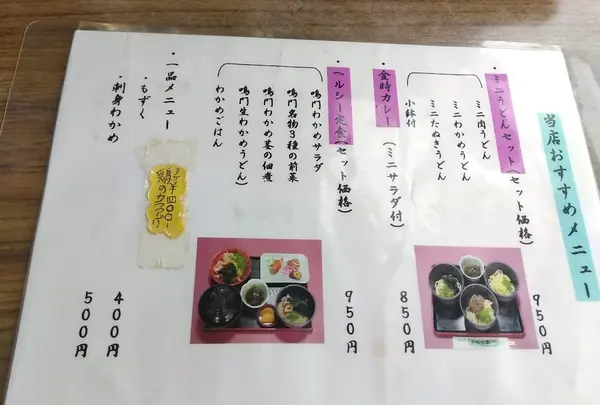 当店おすすめメニュー
・ミニうどんセット(セット価格)
ミニ肉うどん
ミニわかめうどん
ミニたぬきうどん
小鉢付
950円
・金時カレー(ミニサラダ付)
850円
・ヘルシー定食(セット価格)
鳴門わかめサラダ
鳴門名物3種の前菜
鳴門わかめ茎の佃煮
鳴門生わかめうどん
わかめごはん
950円
・一品メニュー
・もずく
400円
・刺身わかめ
500円
鶏のカラアゲ